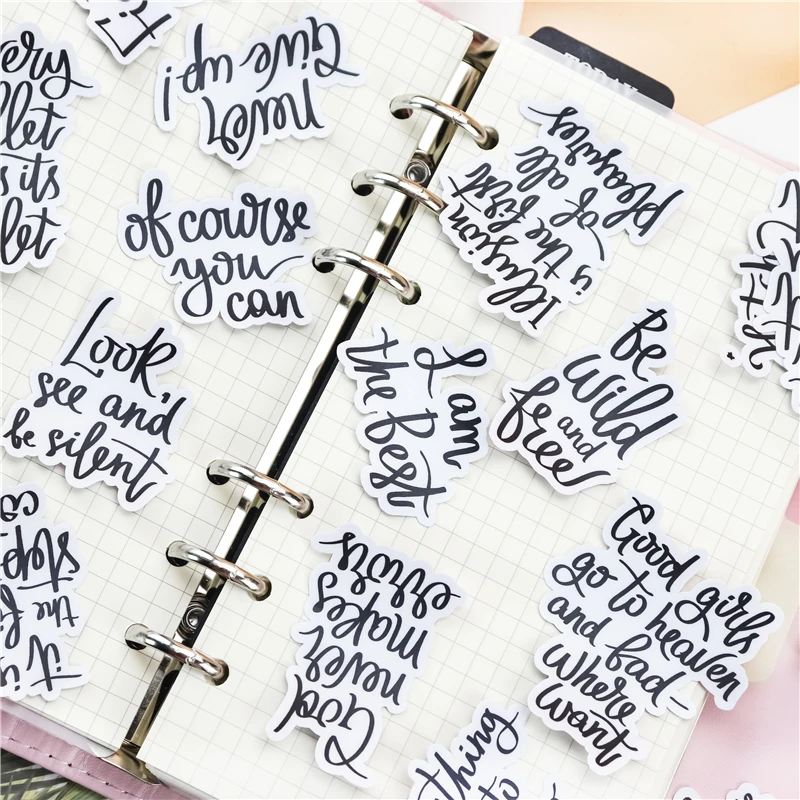 ery
let
s its
let
never
give up!
of course
you
can
Look,
see and
be silent
step
the fi
it is
TODAY
Illusion
is the first
of all
pleasures
I am
the Best
Be
Wild
and
free
God
never
makes
errors
Good girls
go to heaven
and bad-
where
want
thing
to